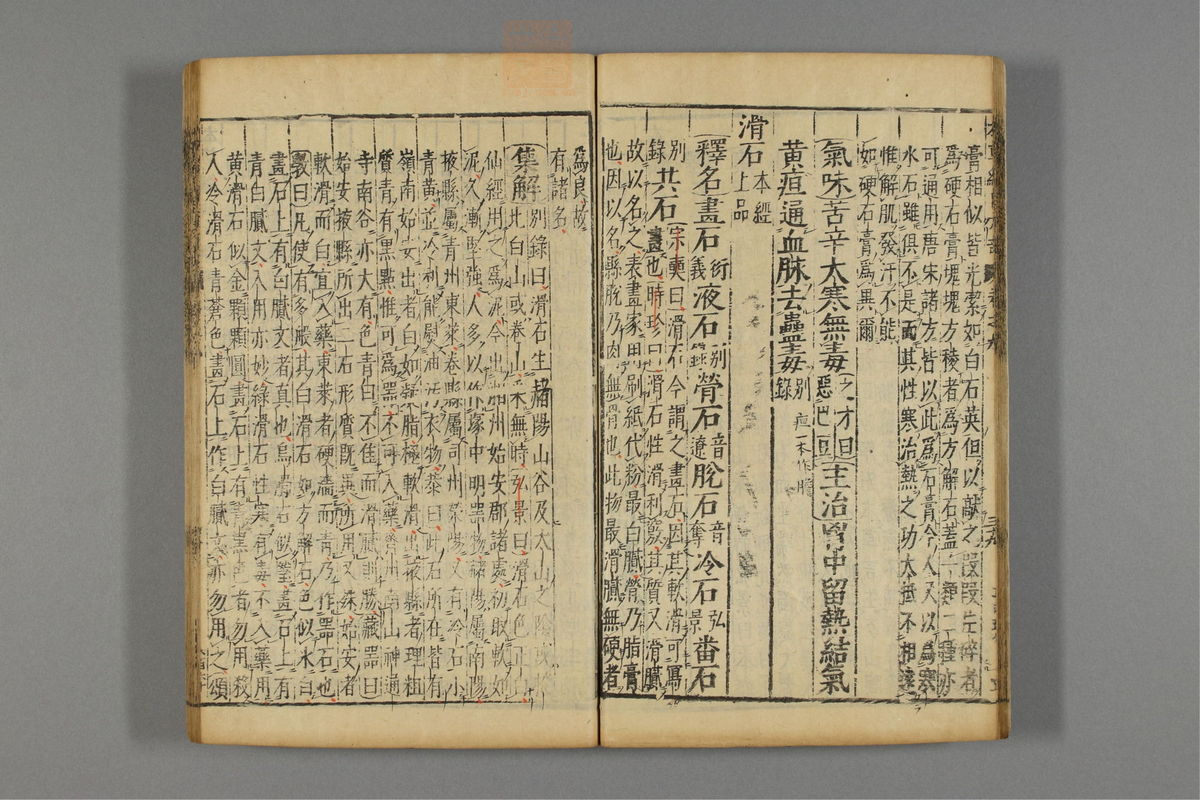 膏相似皆光潔如白石英但以敲之段段片碎者
爲硬石膏塊塊方稜者爲方解石蓋一類二種亦
可通用唐宋諸方皆以此爲石膏今人又以爲寒
水石雖俱不是而其性寒治熱之功大抵不相遠
惟解肌發汗不能
如硬石膏爲異爾
氣味苦辛大寒無毒之才曰
惡巴豆主治胷中留熱結氣
黃疸通血脉去蠱毒別
錄 疸一本作膽
滑石本經
上品
釋名畫石衍
義液石別
錄膋石音
遼脫石音
奪冷石弘
景番石
別
錄共石宗奭曰滑石今謂之畫石因其軟滑可寫
畫也時珍曰滑石性滑利竅其質又滑膩
故以名之表畫家用刷紙代粉最白膩膋乃脂膏
也因以名縣脫乃肉無骨也此物最滑膩無硬者
爲良故
有諸名
集解別錄曰滑石生赭陽山谷及太山之陰或掖
北白山或卷山采無時弘景曰滑石色正白
仙經用之爲泥今出湘州始安郡諸處初取軟如
泥久漸堅強人多以作塚中明器物赭陽屬南陽
掖縣屬青州東萊卷縣屬司州滎陽又有冷石小
青黃並冷利能熨油污衣物恭曰此石所在皆有
嶺南始安出者白如凝脂極軟滑出掖縣者理粗
質青有黑點惟可爲器不可入藥齊州南山神通
寺南谷亦大有色青白不佳而滑膩則勝藏器曰
始安掖縣所出二石形質旣異所用又殊始安者
軟滑而白宜入藥東萊者硬澀而青乃作器石也
斅曰凡使有多般其白滑石如方解石色似冰白
畫石上有白膩文者真也烏滑石似黳畫石上有
青白膩文入用亦妙綠滑石性寒有毒不入藥用
黃滑石似金顆顆圓畫石上有青黑色者勿用殺
人冷滑石青蒼色畫石上作白膩文亦勿用之頌